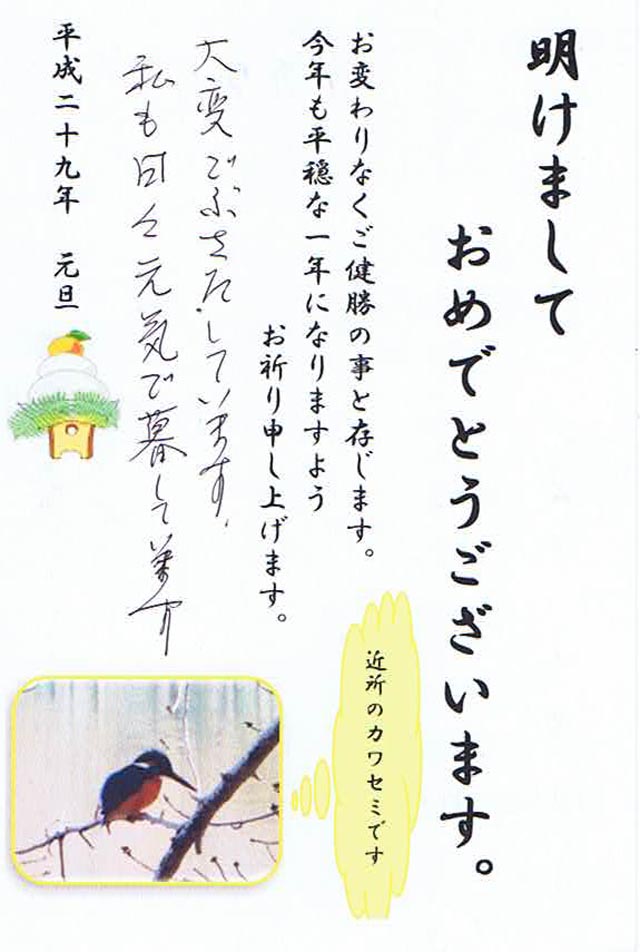 明けまして
おめでとうございます。
お変わりなくご健勝の事と存じます。
今年も平穏な一年になりますよう
お祈り申し上げます。
大変ごぶさたしています。
私も日々元気で暮して
平成二十九年 元旦
近所のカワセミです